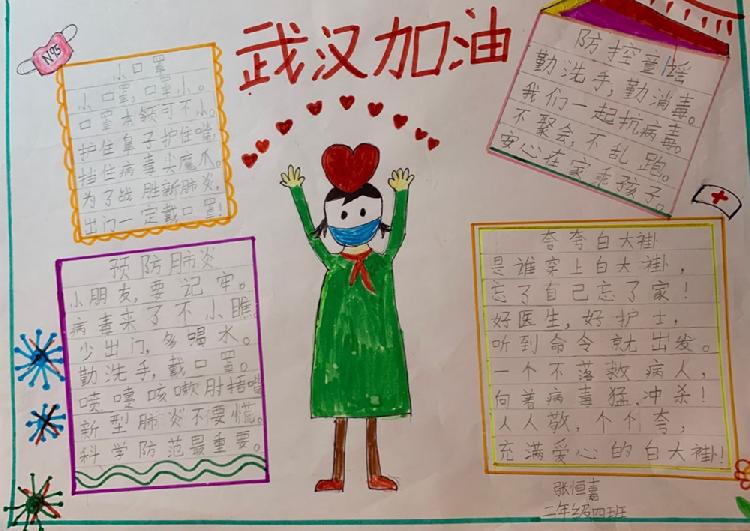 武汉加油
N95
小口罩
小口罩,口罩小。
口罩本领可不小。
护住鼻子护住嘴,
挡住病毒尖魔术。
为了战胜新肺炎,
出门一定戴口罩!
防控童谣
勤洗手,勤消毒。
我们一起抗病毒。
不聚会,不乱跑。
安心在家乖孩子。
预防肺炎
小朋友,要记牢。
病毒来了不小瞧。
少出门,多喝水。
勤洗手,戴口罩。
喷嚏咳嗽肘捂嘴
新型肺炎不要慌。
科学防范最重要。
夸夸白大褂
是谁穿上白大褂,
忘了自己忘了家!
好医生,好护士,
听到命令就出发。
一个不落救病人,
向着病毒猛冲杀!
人人敬,个个夸,
充满爱心的白大褂!
张恒嘉
二年级四班